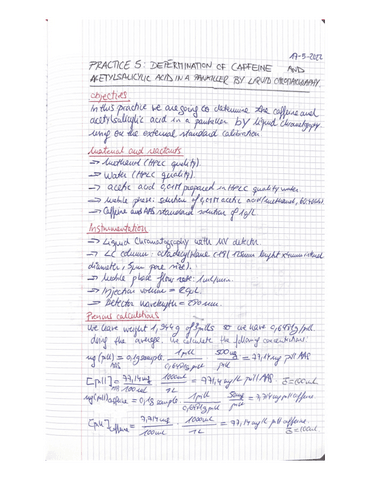 17-5-2022
PRACTICE 5: DETERMINATION OF CAFFEINE AND
ACETYLSALICYLIC ACID IN A PAINKILLER BY LIQUID CHROMATOGRAPHY
Objectives
In this practice we are going to determine the caffeine and
acetylsalicylic acid in a painkiller by liquid
using the external standard calibration.
Material and reactants
-> Methanol (HPLC quality).
-> Water (HPLC quality).
-> acetic acid prepared in HPLC quality water
-> Mobile phase: solution of acetic acid/methanol,
-> Caffeine and AAS standard solution of 1g/L
Instrumentation
-> Liquid Chromatography with UV detector.
-> LC column: octadecylsilane C-18 ( internal
diameter, 5µm pore size).
-> Mobile phase flow rate: 1ml/min.
-> Injection volume =
-> Detector wavelength =
Previous calculations
We have weight of 3 pills so we have
doing the average. We calculate the following concentrations:
mg (pill) AAS = 0,1g sample · 1pill · 500mg / pill = 77,14mg pill AAS
[pill] = 77,14mg / 100ml · 1000ml / 1L = 771,4 mg/L pill AAS.
mg(pill) caffeine = 0,1g sample · 1pill · 50mg / pill = 7,714 mg pill caffeine
[pill] caffeine = 7,714mg / 100ml · 1000ml / 1L = 77,14 mg/L pill caffeine.